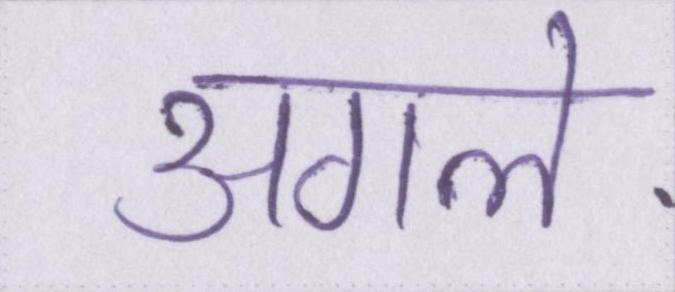 अगले.